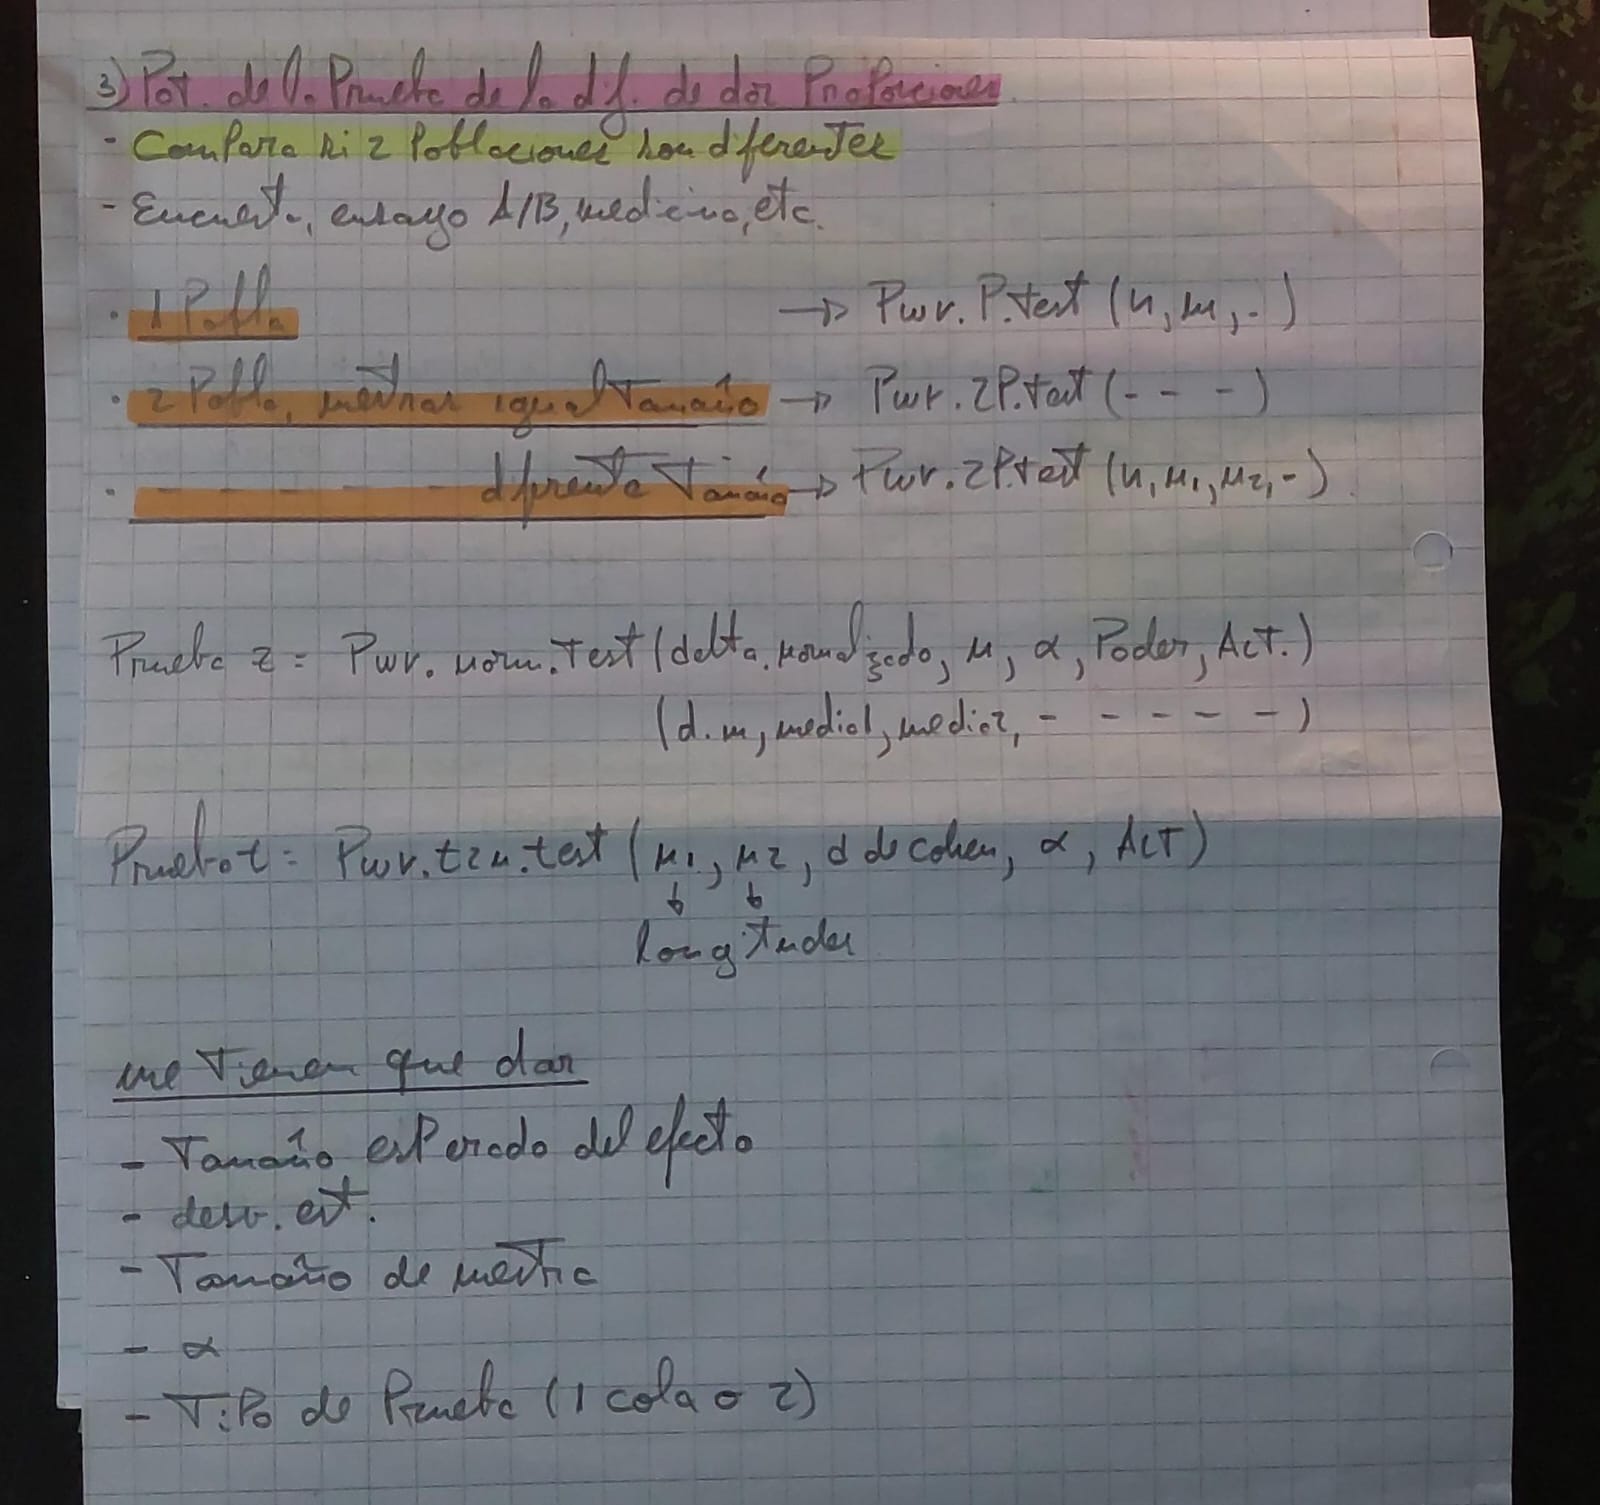 3) Pot. de la Prueba de la dif. de dos Proporciones
- Compara si 2 Poblaciones son diferentes
- Encuesta, ensayo A/B, medicina, etc.
· 1 Pobla → Pwr.P.test (n, m, -)
· 2 Pobla, mestras igual Tamaño → Pwr.2P.test (- - -)
· - - - - - diferente Tamaño → Pwr.2P.test (n, n1, n2, -)
Prueba z = Pwr.norm.Test (delta.normalizado, n, α, Poder, Act.)
(d.n, media1, media2, - - - - -)
Prueba t = Pwr.t2n.test (n1, n2, d de cohen, α, Act)
↓ ↓
longitudes
me Tienen que dar
- Tamaño esperado del efecto
- desv. est.
- Tamaño de mestra
- α
- Tipo de Prueba (1 cola o 2)